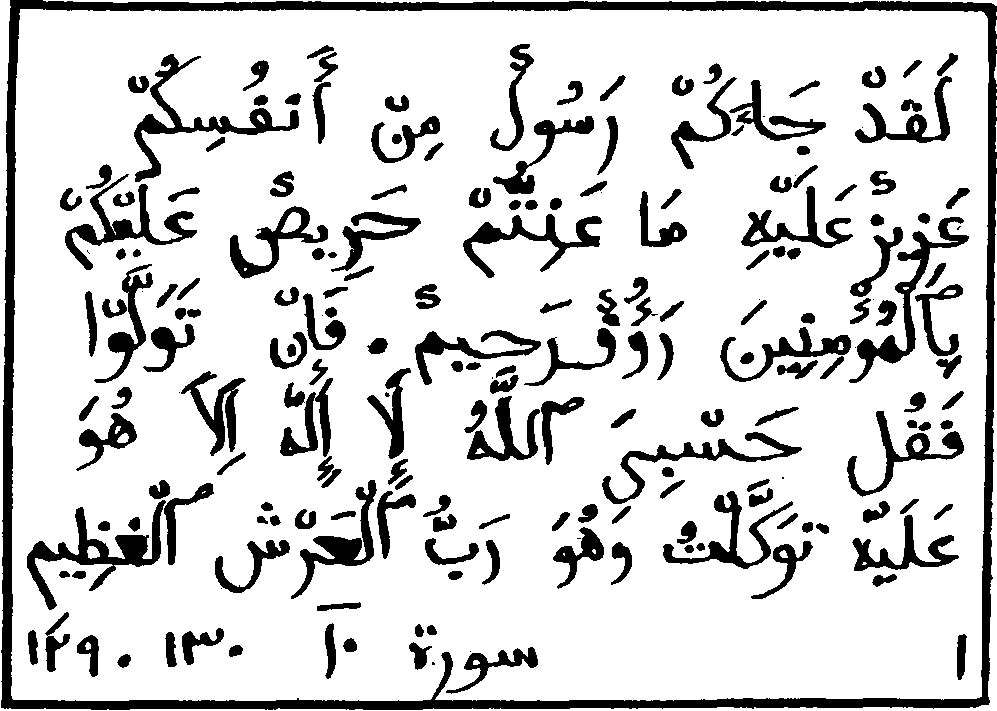 لَقَدْ جَاءَكُمْ رَسُولٌ مِنْ أَنفُسِكُمْ
عَزِيزٌ عَلَيْهِ مَا عَنِتُّمْ حَرِيصٌ عَلَيْكُمْ
بِٱلْمُؤْمِنِينَ رَؤُفٌ رَحِيمٌ . فَإِنْ تَوَلَّوْا
فَقُل حَسْبِيَ ٱللَّهُ لَا إِلَٰهَ إِلَّا هُوَ
عَلَيْهِ تَوَكَّلْتُ وَهُوَ رَبُّ ٱلْعَرْشِ ٱلْعَظِيمِ
١ سورة ١٠ ١٣٠ . ١٢٩